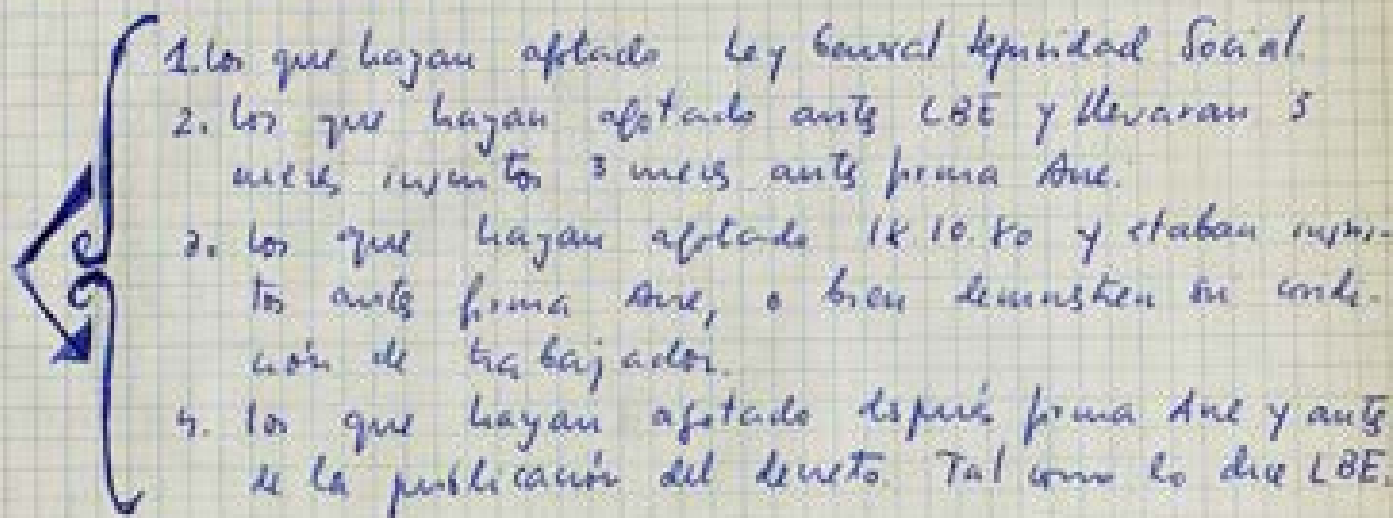 1. los que hayan agotado Ley General Seguridad Social.
2. los que hayan agotado antes LBE y llevaran 5
meses inscritos 3 meses antes firma Ane.
3. los que hayan agotado 18.10.80 y estaban inscri-
tos antes firma Ane, o bien demuestren su condi-
ción de trabajador.
4. los que hayan agotado después firma Ane y antes
de la publicación del decreto. Tal como lo dice LBE.